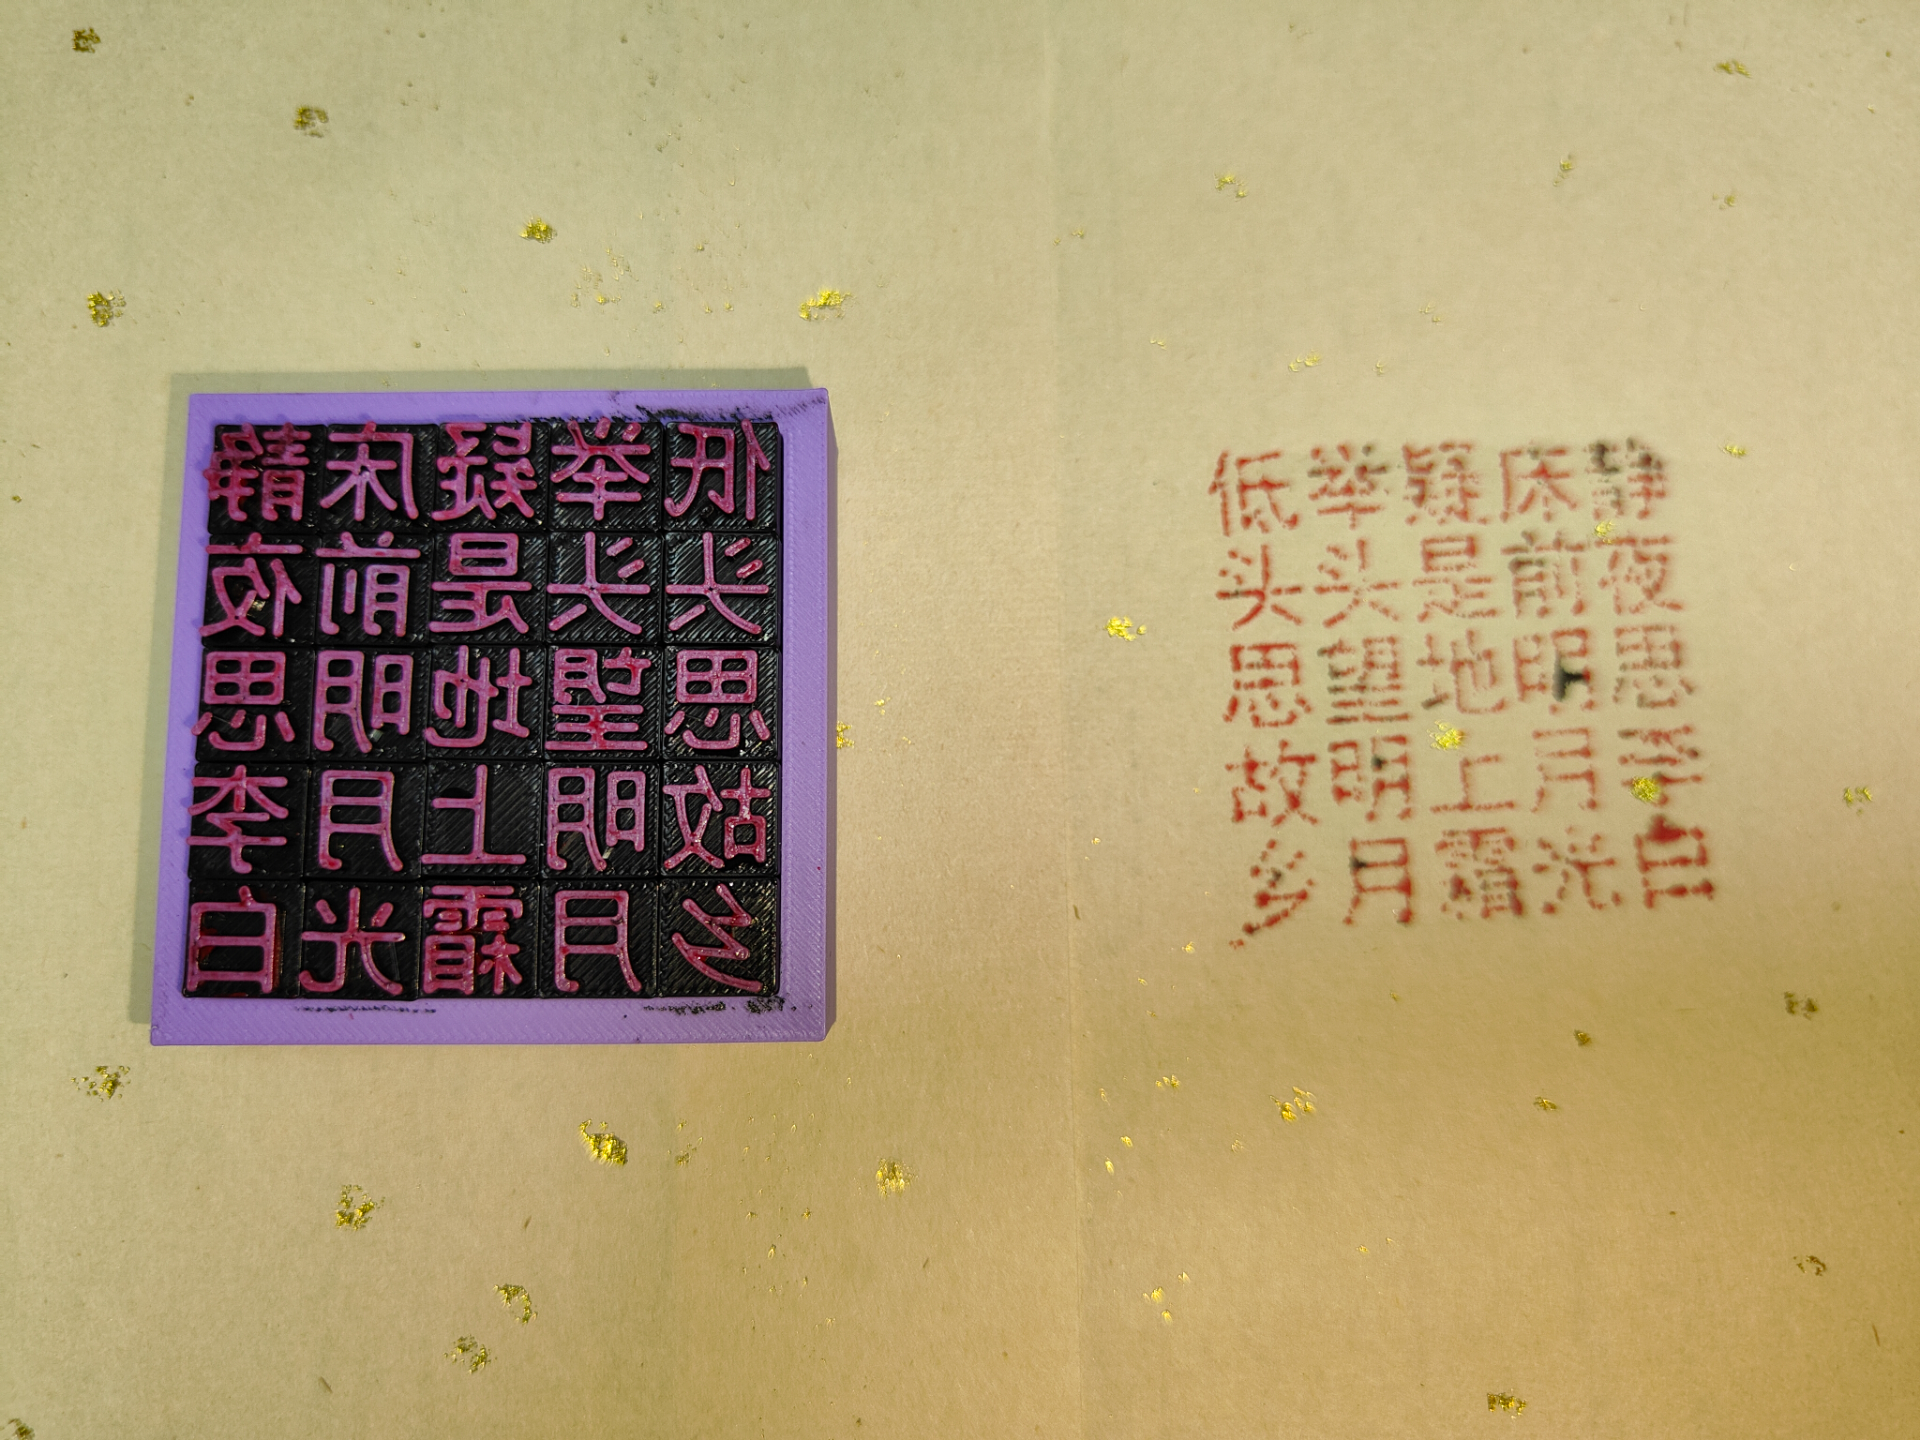 静夜思李白
床前明月光
疑是地上霜
举头望明月
低头思故乡
静夜思李白
床前明月光
疑是地上霜
举头望明月
低头思故乡